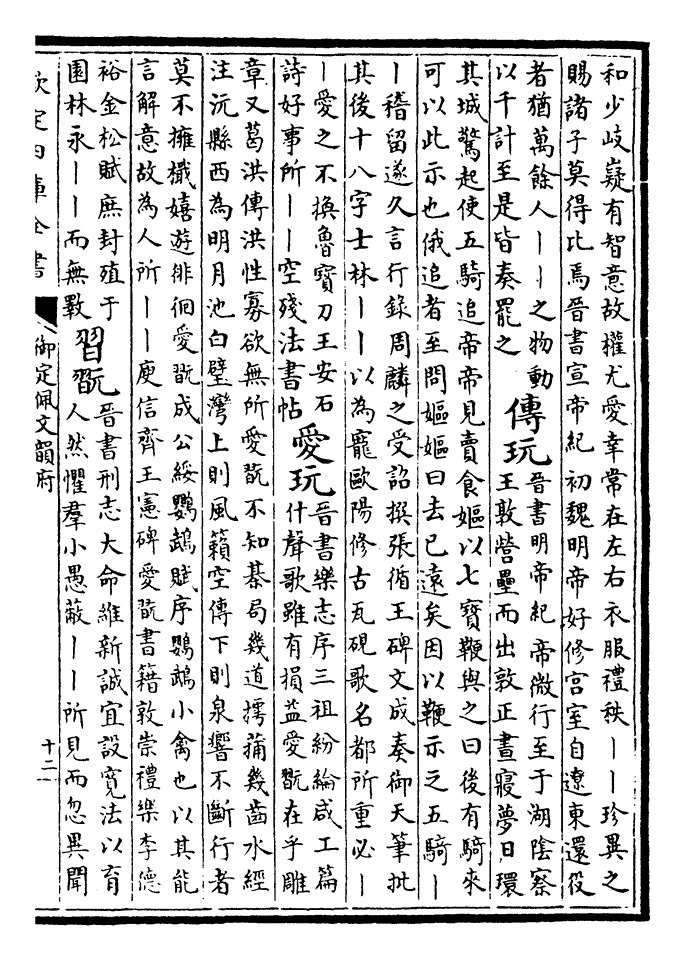 和少岐嶷有智意故權尤愛幸常在左右衣服禮秩丨丨珍異之
賜諸子莫得比焉晉書宣帝紀初魏明帝好修宫室自遼東還役
者猶萬餘人丨丨之物動
以千計至是皆奏罷之
傳玩
晉書明帝紀帝微行至于湖陰察
王敦營壘而出敦正晝寢夢日環
其城驚起使五騎追帝帝見賣食嫗以七寳鞭與之曰後有騎來
可以此示也俄追者至問嫗嫗曰去已遠矣因以鞭示之五騎丨
丨稽留遂久言行錄周麟之受詔撰張循王碑文成奏御天筆批
其後十八字士林丨丨以為寵歐陽修古瓦硯歌名都所重必丨
丨愛之不換魯寶刀王安石
詩好事所丨丨空殘法書帖
愛玩
晉書樂志序三祖紛綸咸工篇
什聲歌雖有損益愛翫在乎雕
章又葛洪傳洪性寡欲無所愛翫不知棊局幾道摴蒱幾齒水經
注沅縣西為明月池白壁灣上則風籟空傳下則泉響不斷行者
莫不擁檝嬉遊徘徊愛翫成公綏鸚鵡賦序鸚鵡小禽也以其能
言解意故為人所丨丨庾信齊王憲碑愛翫書籍敦崇禮樂李德
裕金松賦庶封殖于
園林永丨丨而無斁
習翫
晉書刑志大命維新誠宜設寛法以育
人然懼羣小愚蔽丨丨所見而忽異聞
欽定四庫全書
御定佩文韻府
十二